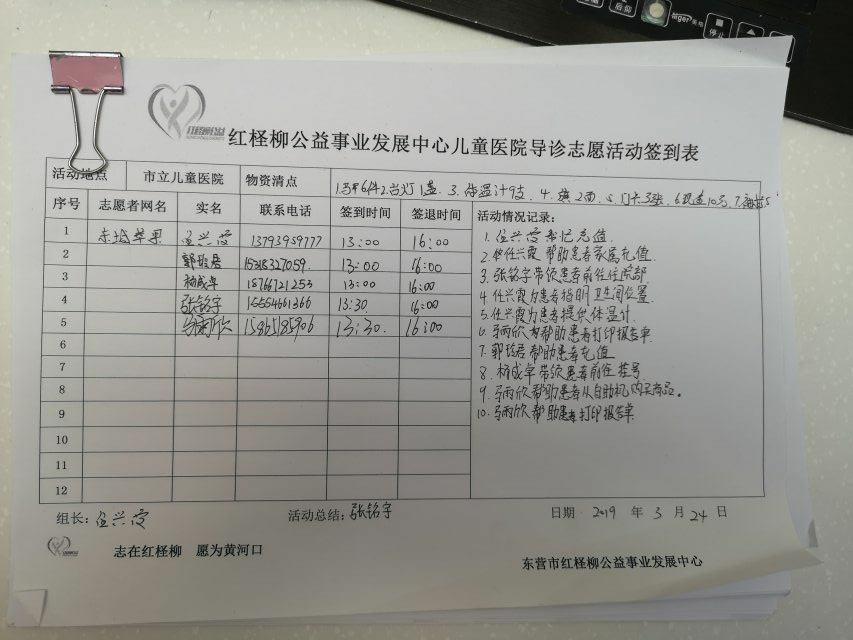 后仰
停止
红柽柳公益
红柽柳公益事业发展中心儿童医院导诊志愿活动签到表
活动地点 市立儿童医院 物资清点 1.马甲6件2.台灯1盏.3.体温计9支.4.旗2面.5.门卡3张.
序号 志愿者网名 实名 联系电话 签到时间 签退时间 活动情况记录:
1 赤城苹果 任兴霞 13793959777 13:00 16:00
2 郭玲君 15318327059 13:00 16:00
3 杨成卓 18766721253 13:00 16:00
4 张铭宇 15554661366 13:30 16:00
5 马雨欣 15865185906 13:30. 16:00
6
7
8
9
10
11
12
1.任兴霞帮忙充值.
2.任兴霞帮助患者家属充值.
3.张铭宇带领患者前往住院部
4.任兴霞为患者指明卫生间位置.
5.任兴霞为患者提供体温计
6.马雨欣帮助患者打印报告单.
7.郭玲君帮助患者充值
8.杨成卓带领患者前往挂号
9.马雨欣帮助患者从自助机购买商品。
10.马雨欣帮助患者打印报告单
组长:任兴霞 活动总结:张铭宇 日期 2019 年 3 月 24 日
志在红柽柳 愿为黄河口
东营市红柽柳公益事业发展中心